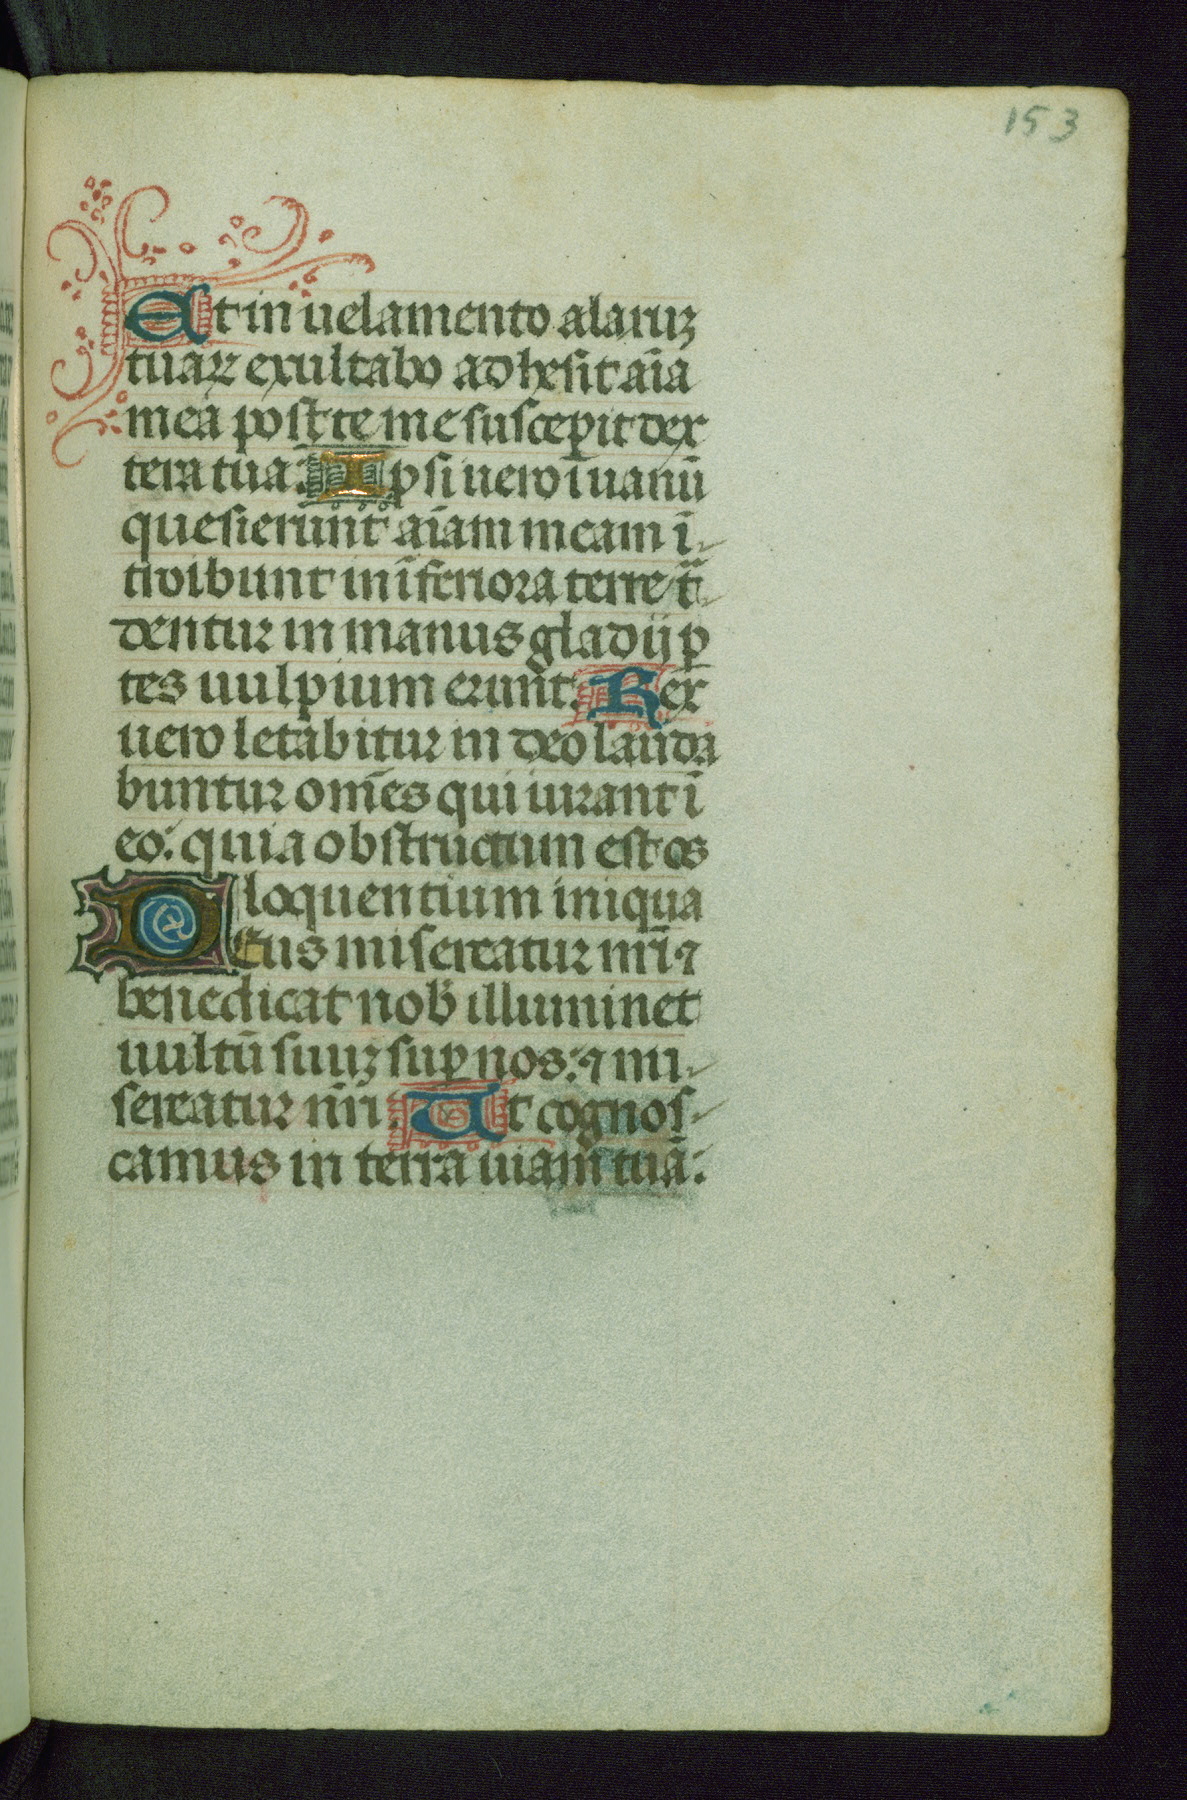 153
Et in uelamento alaruʒ
tuaꝝ exultabo adhesit aīa
mea post te me suscepit dex
tera tua: Ipsi uero ī uanū
quesierunt aīam meam ī-
troibunt in īferiora terre t̄-
dentur in manus gladij p̲
tes uulpium erunt. Rex
uero letabitur in deo lauda
buntur om̄es qui iurant ī
eo: quia obstructum est os
loquentium iniqua
Deus misereatur nr̄i ⁊
benedicat nob̄ illuminet
uultū suuʒ sup̲ nos: ⁊ mi-
sereatur nr̄i: Ut cognos-
camus in terra uiam tuā: